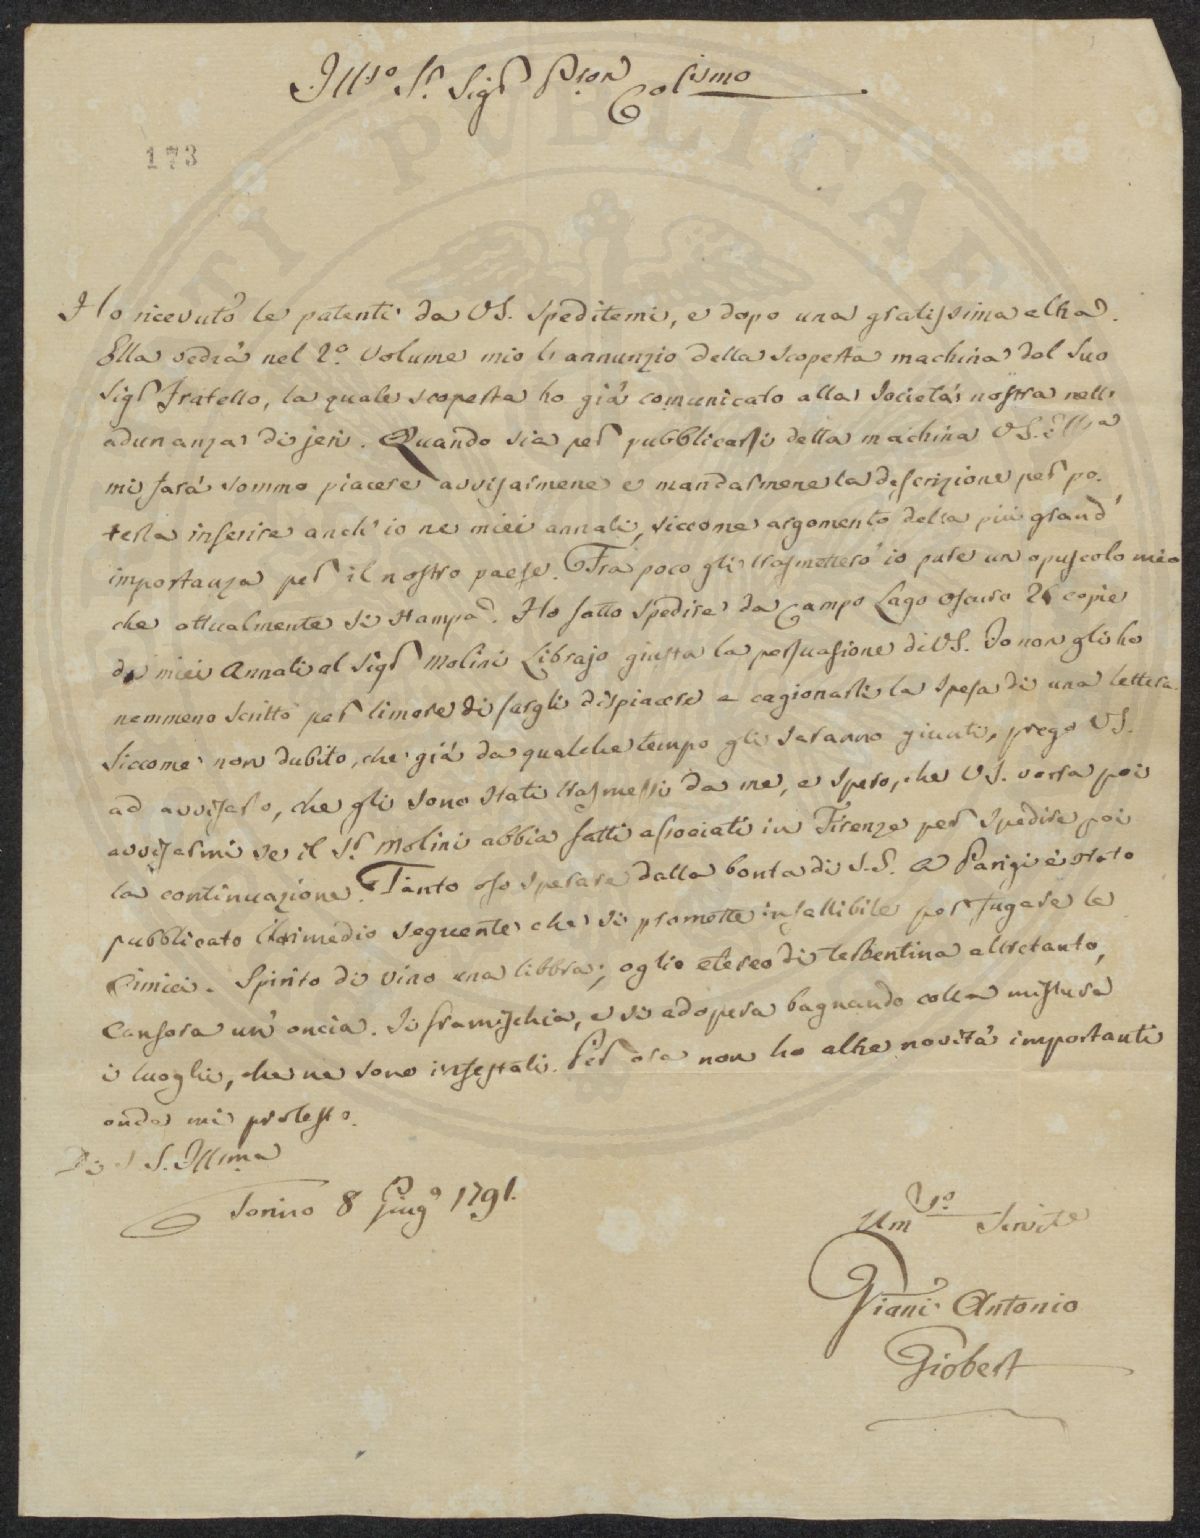 Ill.so S.r Sig.r Pron Colsimo
173
Ho ricevuto le patenti da VS. speditemi, e dopo una gratissima altra.
Ella vedrà nel 2.º Volume mio l'annunzio della scoperta machina dal suo
Sig.r Fratello, la quale scoperta ho giá comunicato alla Societá nostra nell'
adunanza di jeri. Quando sia per pubblicarsi detta machina VS. Ill.a
mi fará sommo piacere avvisarmene e mandarmene la descrizione per po-
terla inserire anch'io ne miei annali, siccome argomento della piú grand'
importanza per il nostro paese. Frà poco gli trasmetteró io pure un opuscolo mio
che attualmente si stampa. Ho fatto spedire da Campo Lago oscuro 25 copie
de miei Annali al Sig.r Molini Librajo giusta la persuasione di VS. Io non gli ho
nemmeno scritto per timore di fargli dispiacere e cagionarli la spesa di una lettera.
Siccome non dubito, che giá da qualche tempo gli saranno giunti, prego VS.
ad avvisarlo, che gli sono stati trasmessi da me, e spero, che VS. vorrà poi
avvisarmi se il S.r Molini abbia fatti associati in Firenze per spedire poi
la continuazione. Tanto oso sperare dalla bontà di S.S. A Parigi è stato
pubblicato il rimedio seguente che si promette infallibile per fugare le
Cimici. Spirito di vino una libbra; oglio etereo di terbentina altretanto,
Canfora un' oncia. Si framischia, e si adopera bagnando colla mistura
i luoghi, che ne sono infestati. Per ora non ho altre novitá importanti
onde mi protesto.
Di S.S. Ill.ma
Torino 8 Giug.º 1791.
Um.mo Servit.e
Giani Antonio
Giobert